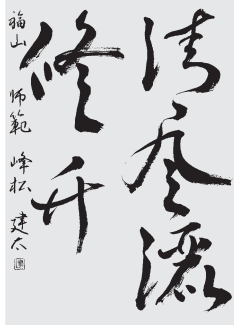 清風灑
修竹
福山 師範 峰松 建太